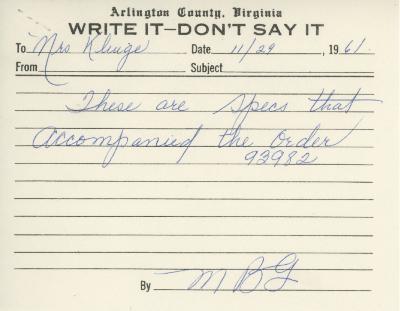 Arlington County, Virginia
WRITE IT—DON'T SAY IT
To Mrs Kluge Date 11/29, 1961.
From Subject
These are specs that
accompanied the order
93982
By MBG